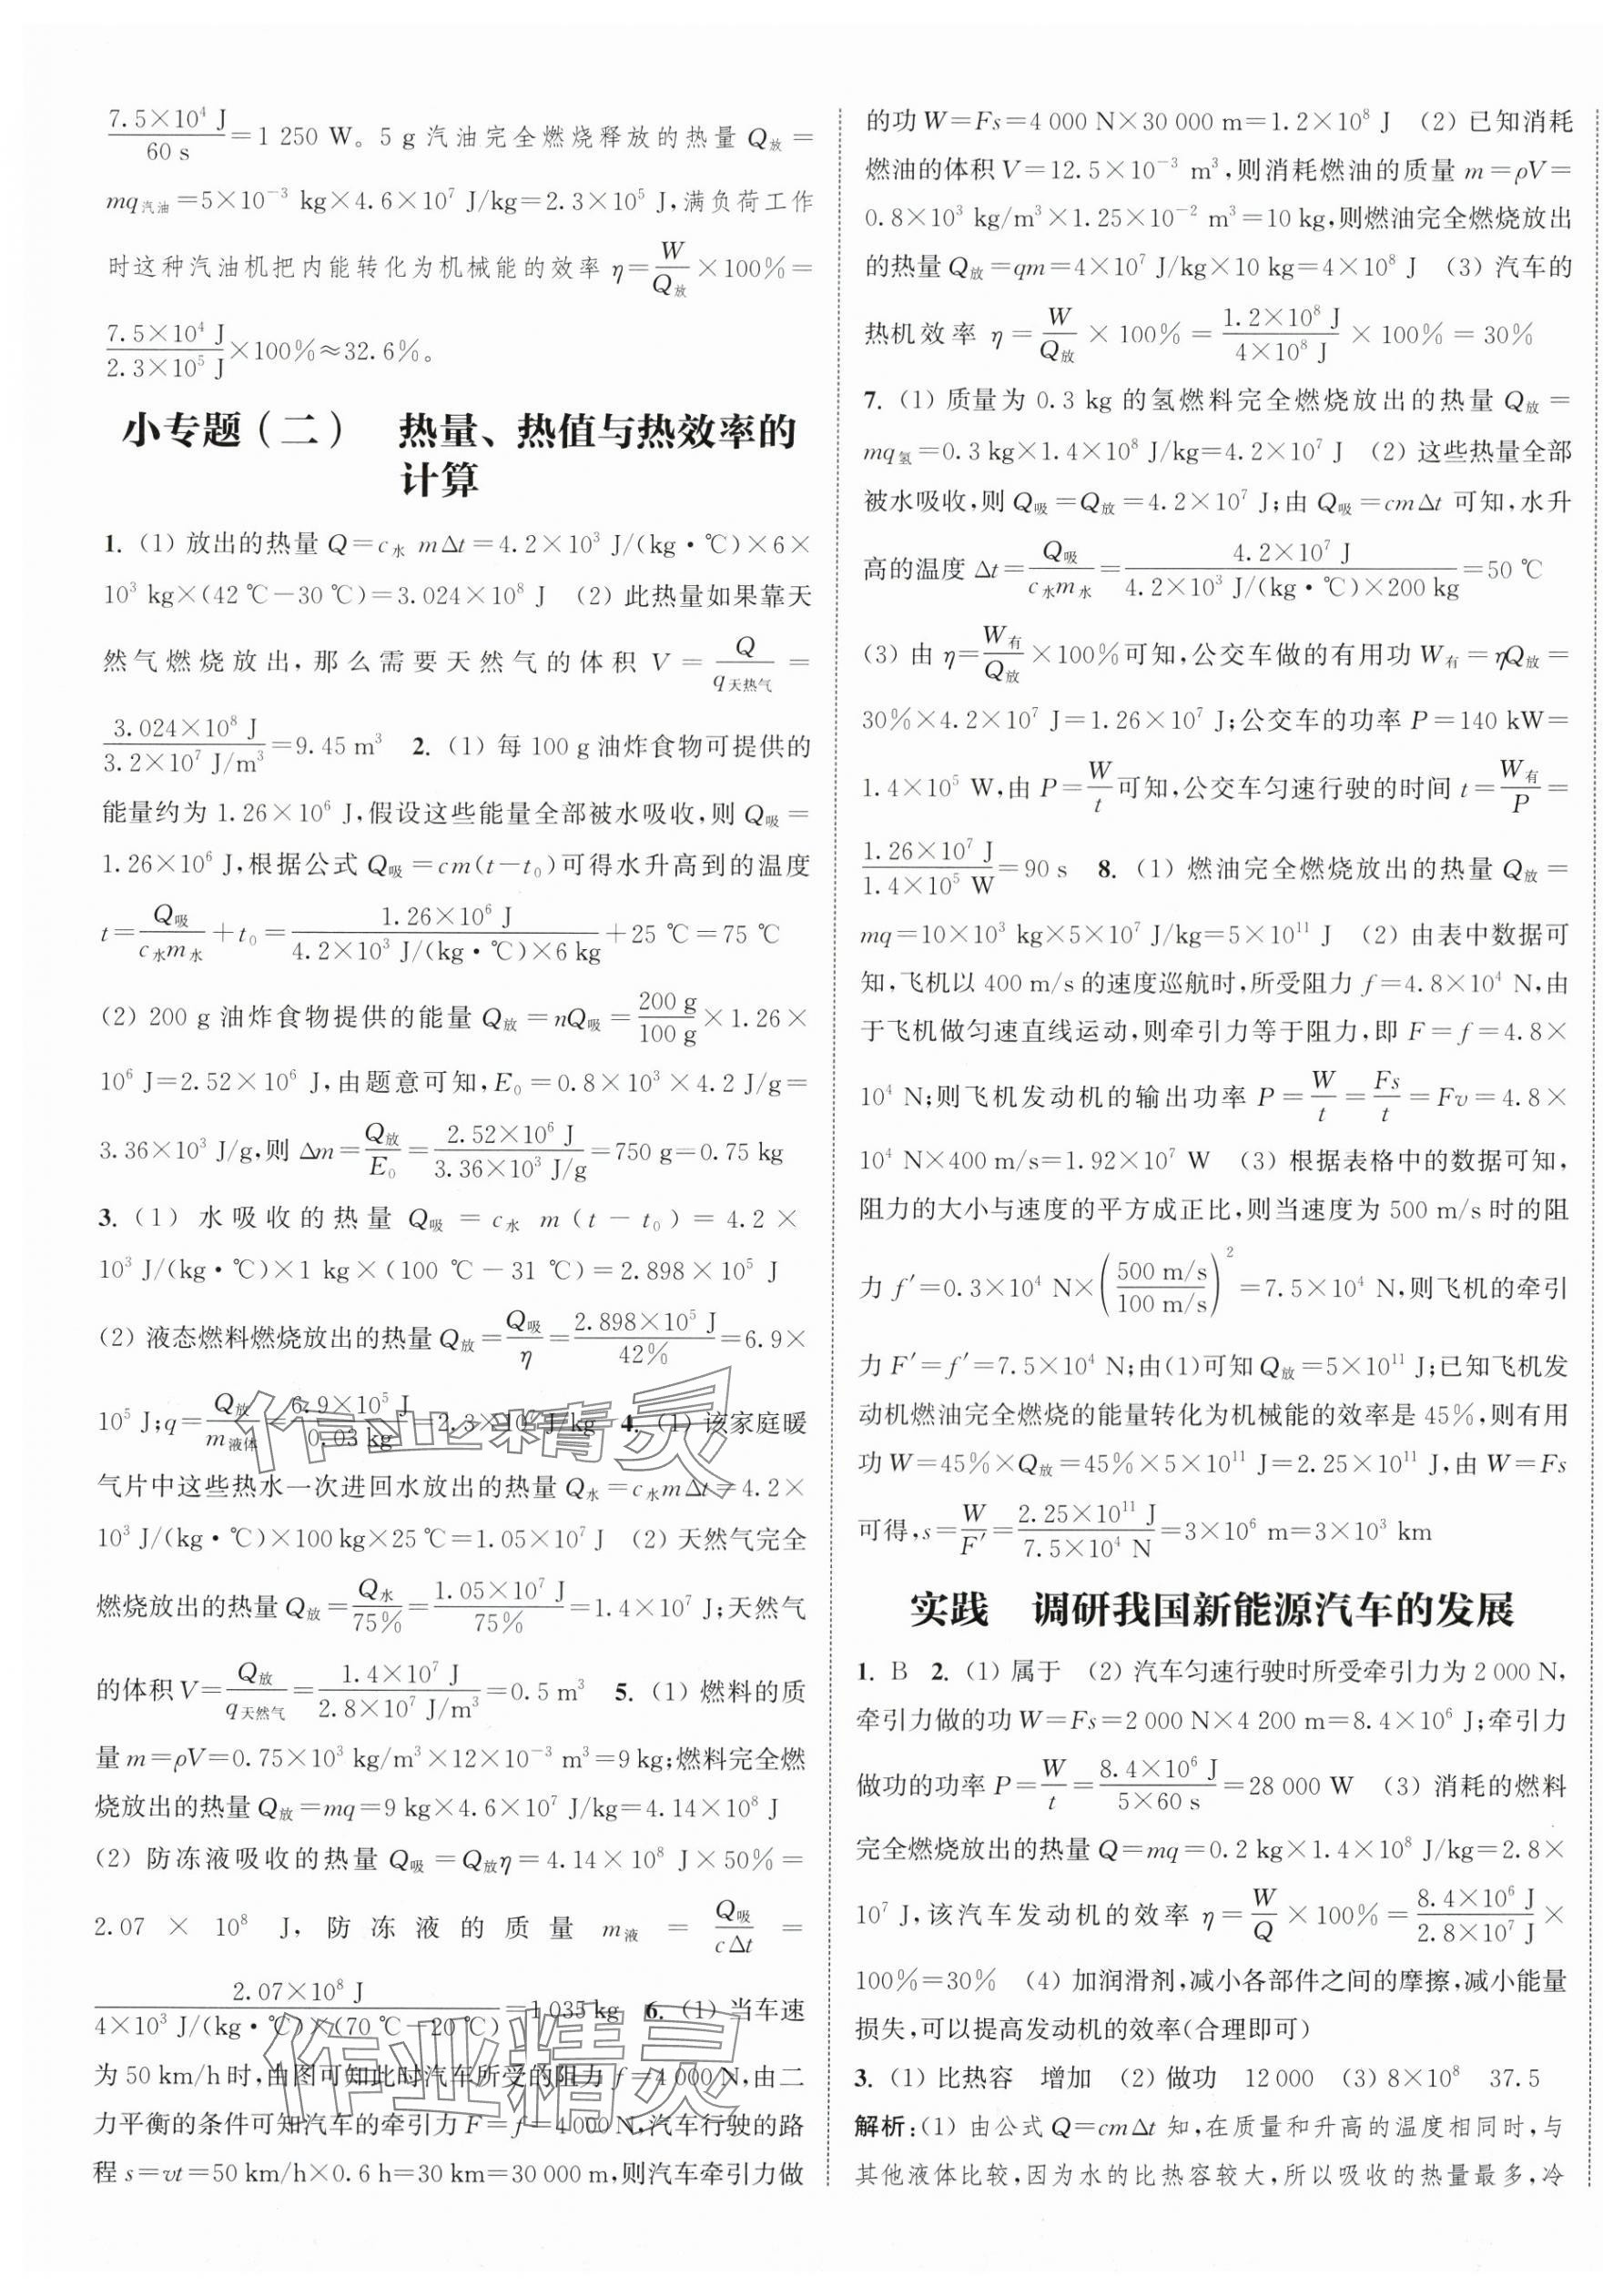 7.5×10⁴ J/60 s=1 250 W。5 g 汽油完全燃烧释放的热量 Q放=
mq汽油=5×10⁻³ kg×4.6×10⁷ J/kg=2.3×10⁵ J,满负荷工作
时这种汽油机把内能转化为机械能的效率 η=W/Q放×100%=
7.5×10⁴ J/2.3×10⁵ J×100%≈32.6%。
小专题(二) 热量、热值与热效率的
计算
1. (1) 放出的热量 Q=c水 mΔt=4.2×10³ J/(kg·℃)×6×
10³ kg×(42 ℃-30 ℃)=3.024×10⁸ J (2) 此热量如果靠天
然气燃烧放出,那么需要天然气的体积 V=Q/q天热气=
3.024×10⁸ J/3.2×10⁷ J/m³=9.45 m³ 2. (1) 每 100 g 油炸食物可提供的
能量约为 1.26×10⁶ J,假设这些能量全部被水吸收,则 Q吸=
1.26×10⁶ J,根据公式 Q吸=cm(t-t₀)可得水升高到的温度
t=Q吸/c水m水+t₀=1.26×10⁶ J/4.2×10³ J/(kg·℃)×6 kg+25 ℃=75 ℃
(2) 200 g 油炸食物提供的能量 Q放=nQ吸=200 g/100 g×1.26×
10⁶ J=2.52×10⁶ J,由题意可知,E₀=0.8×10³×4.2 J/g=
3.36×10³ J/g,则 Δm=Q放/E₀=2.52×10⁶ J/3.36×10³ J/g=750 g=0.75 kg
3. (1) 水吸收的热量 Q吸=c水 m(t-t₀)=4.2×
10³ J/(kg·℃)×1 kg×(100 ℃-31 ℃)=2.898×10⁵ J
(2) 液态燃料燃烧放出的热量 Q放=Q吸/η=2.898×10⁵ J/42%=6.9×
10⁵ J;q=Q放/m液体=6.9×10⁵ J/0.03 kg=2.3×10⁷ J/kg 4. (1) 该家庭暖
气片中这些热水一次进回水放出的热量 Q水=c水mΔt=4.2×
10³ J/(kg·℃)×100 kg×25 ℃=1.05×10⁷ J (2) 天然气完全
燃烧放出的热量 Q放=Q水/75%=1.05×10⁷ J/75%=1.4×10⁷ J;天然气
的体积 V=Q放/q天然气=1.4×10⁷ J/2.8×10⁷ J/m³=0.5 m³ 5. (1) 燃料的质
量 m=ρV=0.75×10³ kg/m³×12×10⁻³ m³=9 kg;燃料完全燃
烧放出的热量 Q放=mq=9 kg×4.6×10⁷ J/kg=4.14×10⁸ J
(2) 防冻液吸收的热量 Q吸=Q放η=4.14×10⁸ J×50%=
2.07×10⁸ J,防冻液的质量 m液=Q吸/cΔt=
2.07×10⁸ J/4×10³ J/(kg·℃)×(70 ℃-20 ℃)=1 035 kg 6. (1) 当车速
为 50 km/h 时,由图可知此时汽车所受的阻力 f=4 000 N,由二
力平衡的条件可知汽车的牵引力 F=f=4 000 N,汽车行驶的路
程 s=vt=50 km/h×0.6 h=30 km=30 000 m,则汽车牵引力做
的功 W=Fs=4 000 N×30 000 m=1.2×10⁸ J (2) 已知消耗
燃油的体积 V=12.5×10⁻³ m³,则消耗燃油的质量 m=ρV=
0.8×10³ kg/m³×1.25×10⁻² m³=10 kg,则燃油完全燃烧放出
的热量 Q放=qm=4×10⁷ J/kg×10 kg=4×10⁸ J (3) 汽车的
热机效率 η=W/Q放×100%=1.2×10⁸ J/4×10⁸ J×100%=30%
7. (1) 质量为 0.3 kg 的氢燃料完全燃烧放出的热量 Q放=
mq氢=0.3 kg×1.4×10⁸ J/kg=4.2×10⁷ J (2) 这些热量全部
被水吸收,则 Q吸=Q放=4.2×10⁷ J;由 Q吸=cmΔt 可知,水升
高的温度 Δt=Q吸/c水m水=4.2×10⁷ J/4.2×10³ J/(kg·℃)×200 kg=50 ℃
(3) 由 η=W有/Q放×100%可知,公交车做的有用功 W有=ηQ放=
30%×4.2×10⁷ J=1.26×10⁷ J;公交车的功率 P=140 kW=
1.4×10⁵ W,由 P=W/t可知,公交车匀速行驶的时间 t=W有/P=
1.26×10⁷ J/1.4×10⁵ W=90 s 8. (1) 燃油完全燃烧放出的热量 Q放=
mq=10×10³ kg×5×10⁷ J/kg=5×10¹¹ J (2) 由表中数据可
知,飞机以 400 m/s 的速度巡航时,所受阻力 f=4.8×10⁴ N,由
于飞机做匀速直线运动,则牵引力等于阻力,即 F=f=4.8×
10⁴ N;则飞机发动机的输出功率 P=W/t=Fs/t=Fv=4.8×
10⁴ N×400 m/s=1.92×10⁷ W (3) 根据表格中的数据可知,
阻力的大小与速度的平方成正比,则当速度为 500 m/s 时的阻
力 f′=0.3×10⁴ N×(500 m/s/100 m/s)²=7.5×10⁴ N,则飞机的牵引
力 F′=f′=7.5×10⁴ N;由(1)可知 Q放=5×10¹¹ J;已知飞机发
动机燃油完全燃烧的能量转化为机械能的效率是 45%,则有用
功 W=45%×Q放=45%×5×10¹¹ J=2.25×10¹¹ J,由 W=Fs
可得,s=W/F′=2.25×10¹¹ J/7.5×10⁴ N=3×10⁶ m=3×10³ km
实践 调研我国新能源汽车的发展
1. B 2. (1) 属于 (2) 汽车匀速行驶时所受牵引力为 2 000 N,
牵引力做的功 W=Fs=2 000 N×4 200 m=8.4×10⁶ J;牵引力
做功的功率 P=W/t=8.4×10⁶ J/5×60 s=28 000 W (3) 消耗的燃料
完全燃烧放出的热量 Q=mq=0.2 kg×1.4×10⁸ J/kg=2.8×
10⁷ J,该汽车发动机的效率 η=W/Q×100%=8.4×10⁶ J/2.8×10⁷ J×
100%=30% (4) 加润滑剂,减小各部件之间的摩擦,减小能量
损失,可以提高发动机的效率(合理即可)
3. (1) 比热容 增加 (2) 做功 12 000 (3) 8×10⁸ 37.5
解析:(1) 由公式 Q=cmΔt 知,在质量和升高的温度相同时,与
其他液体比较,因为水的比热容较大,所以吸收的热量最多,冷
作业精灵
作业精灵